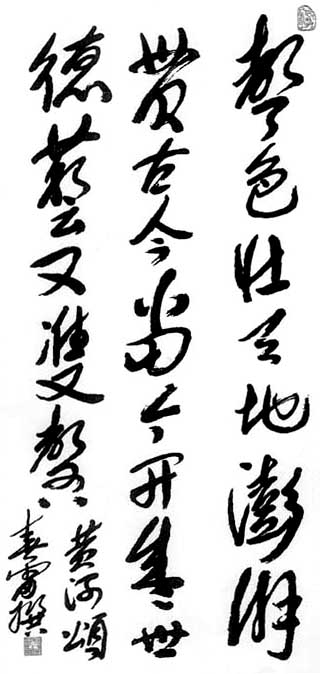 聲色壮天地澎湃
贯古今當今开盛世
德藝又雙馨
黄河頌
春雷撰